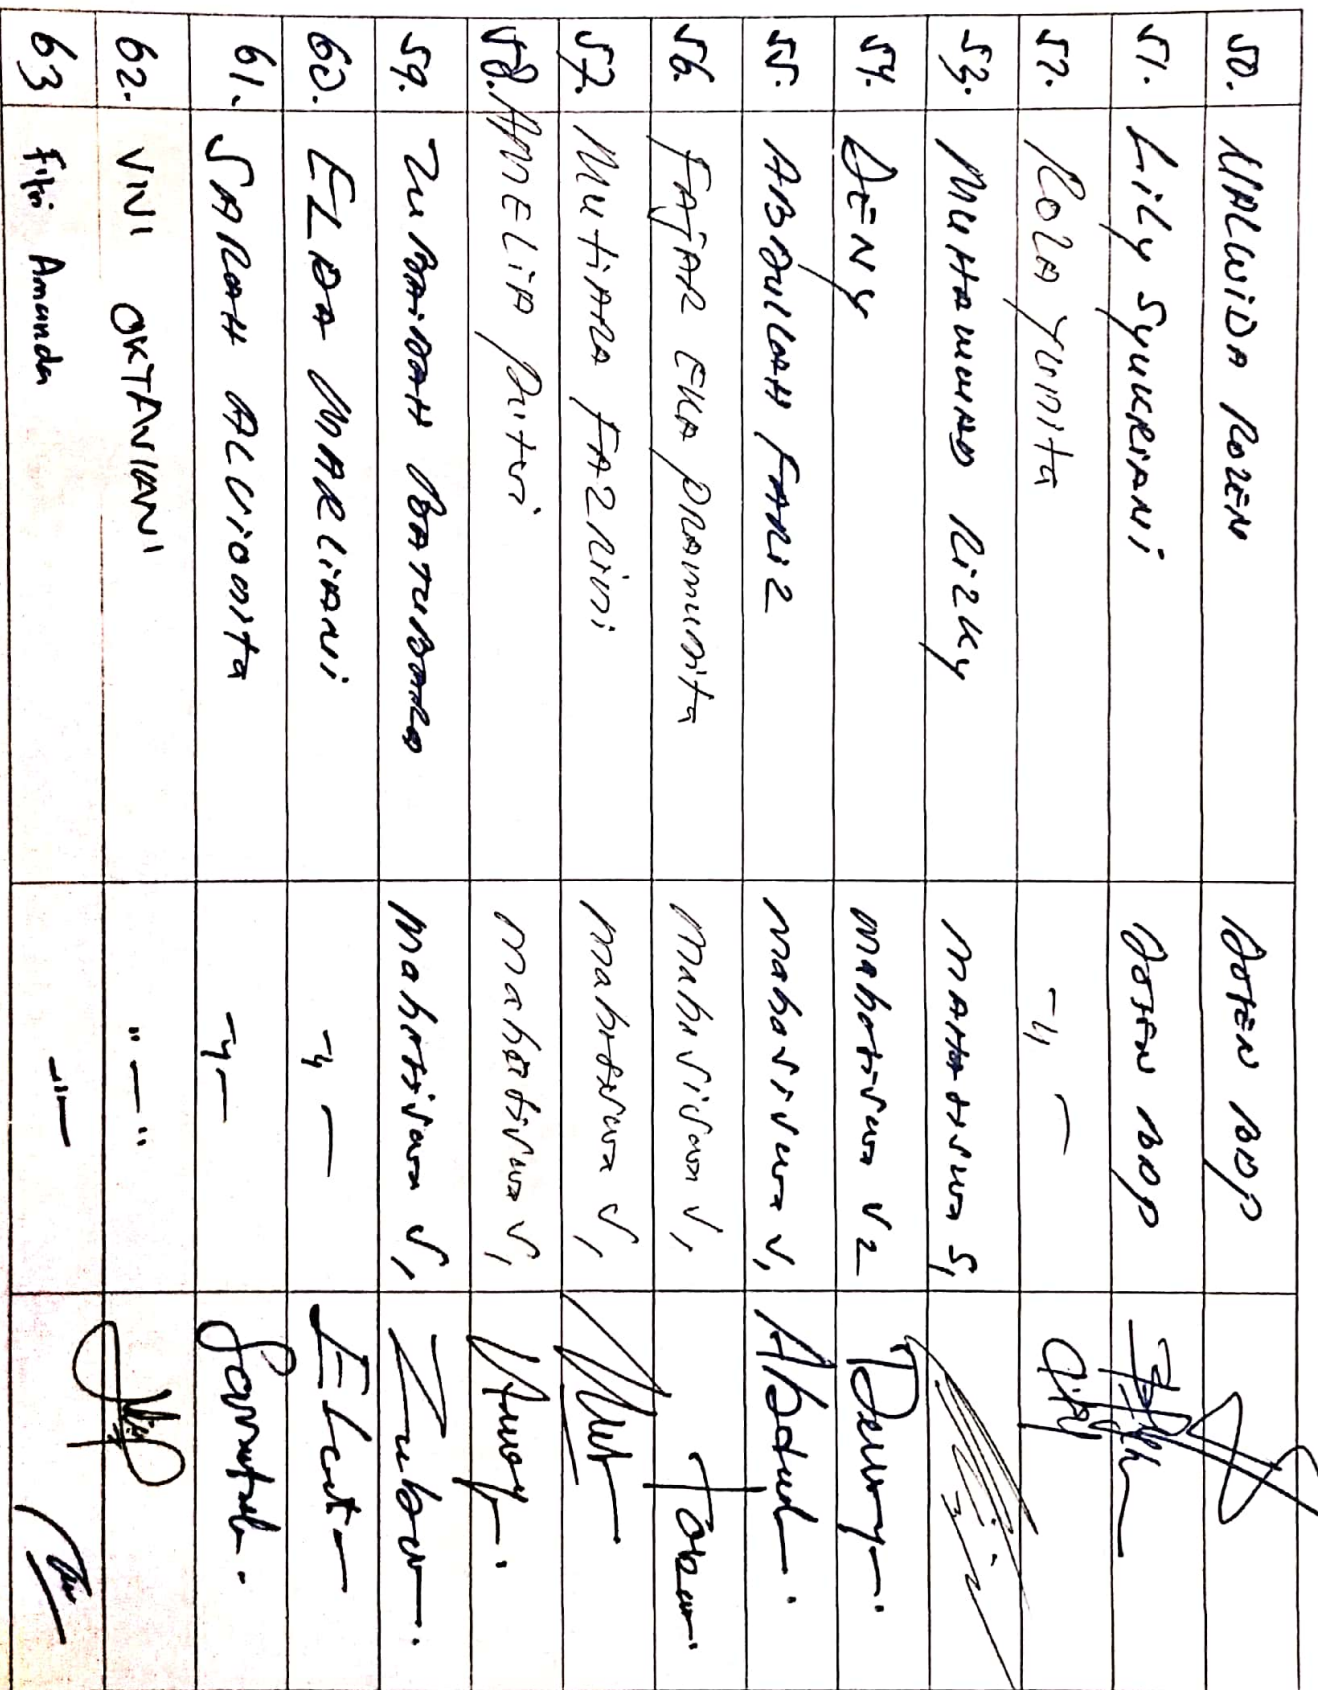 50. MALWIDA ROZEN DOSEN BDP
51. Lily Syukriani DOSEN BDP
52. Roza Yunita -"-
53. MUHAMMAD Rizky MAHASISWA S1
54. DENY mahasiswa S2
55. ABDULLAH FARIZ mahasiswa S1
56. FAJAR EKA PRAMUDITA mahasiswa S1
57. MUTIARA FAZRINI mahasiswa S1
58. AMELIA Putri mahasiswa S1
59. ZUBAIDAH BATUBARA mahasiswa S1
60. ELDA MARLIANI -"-
61. SARAH ALVIONITA -"-
62. VIVI OKTAVIANI "-"
63 Fitri Amanda -"-